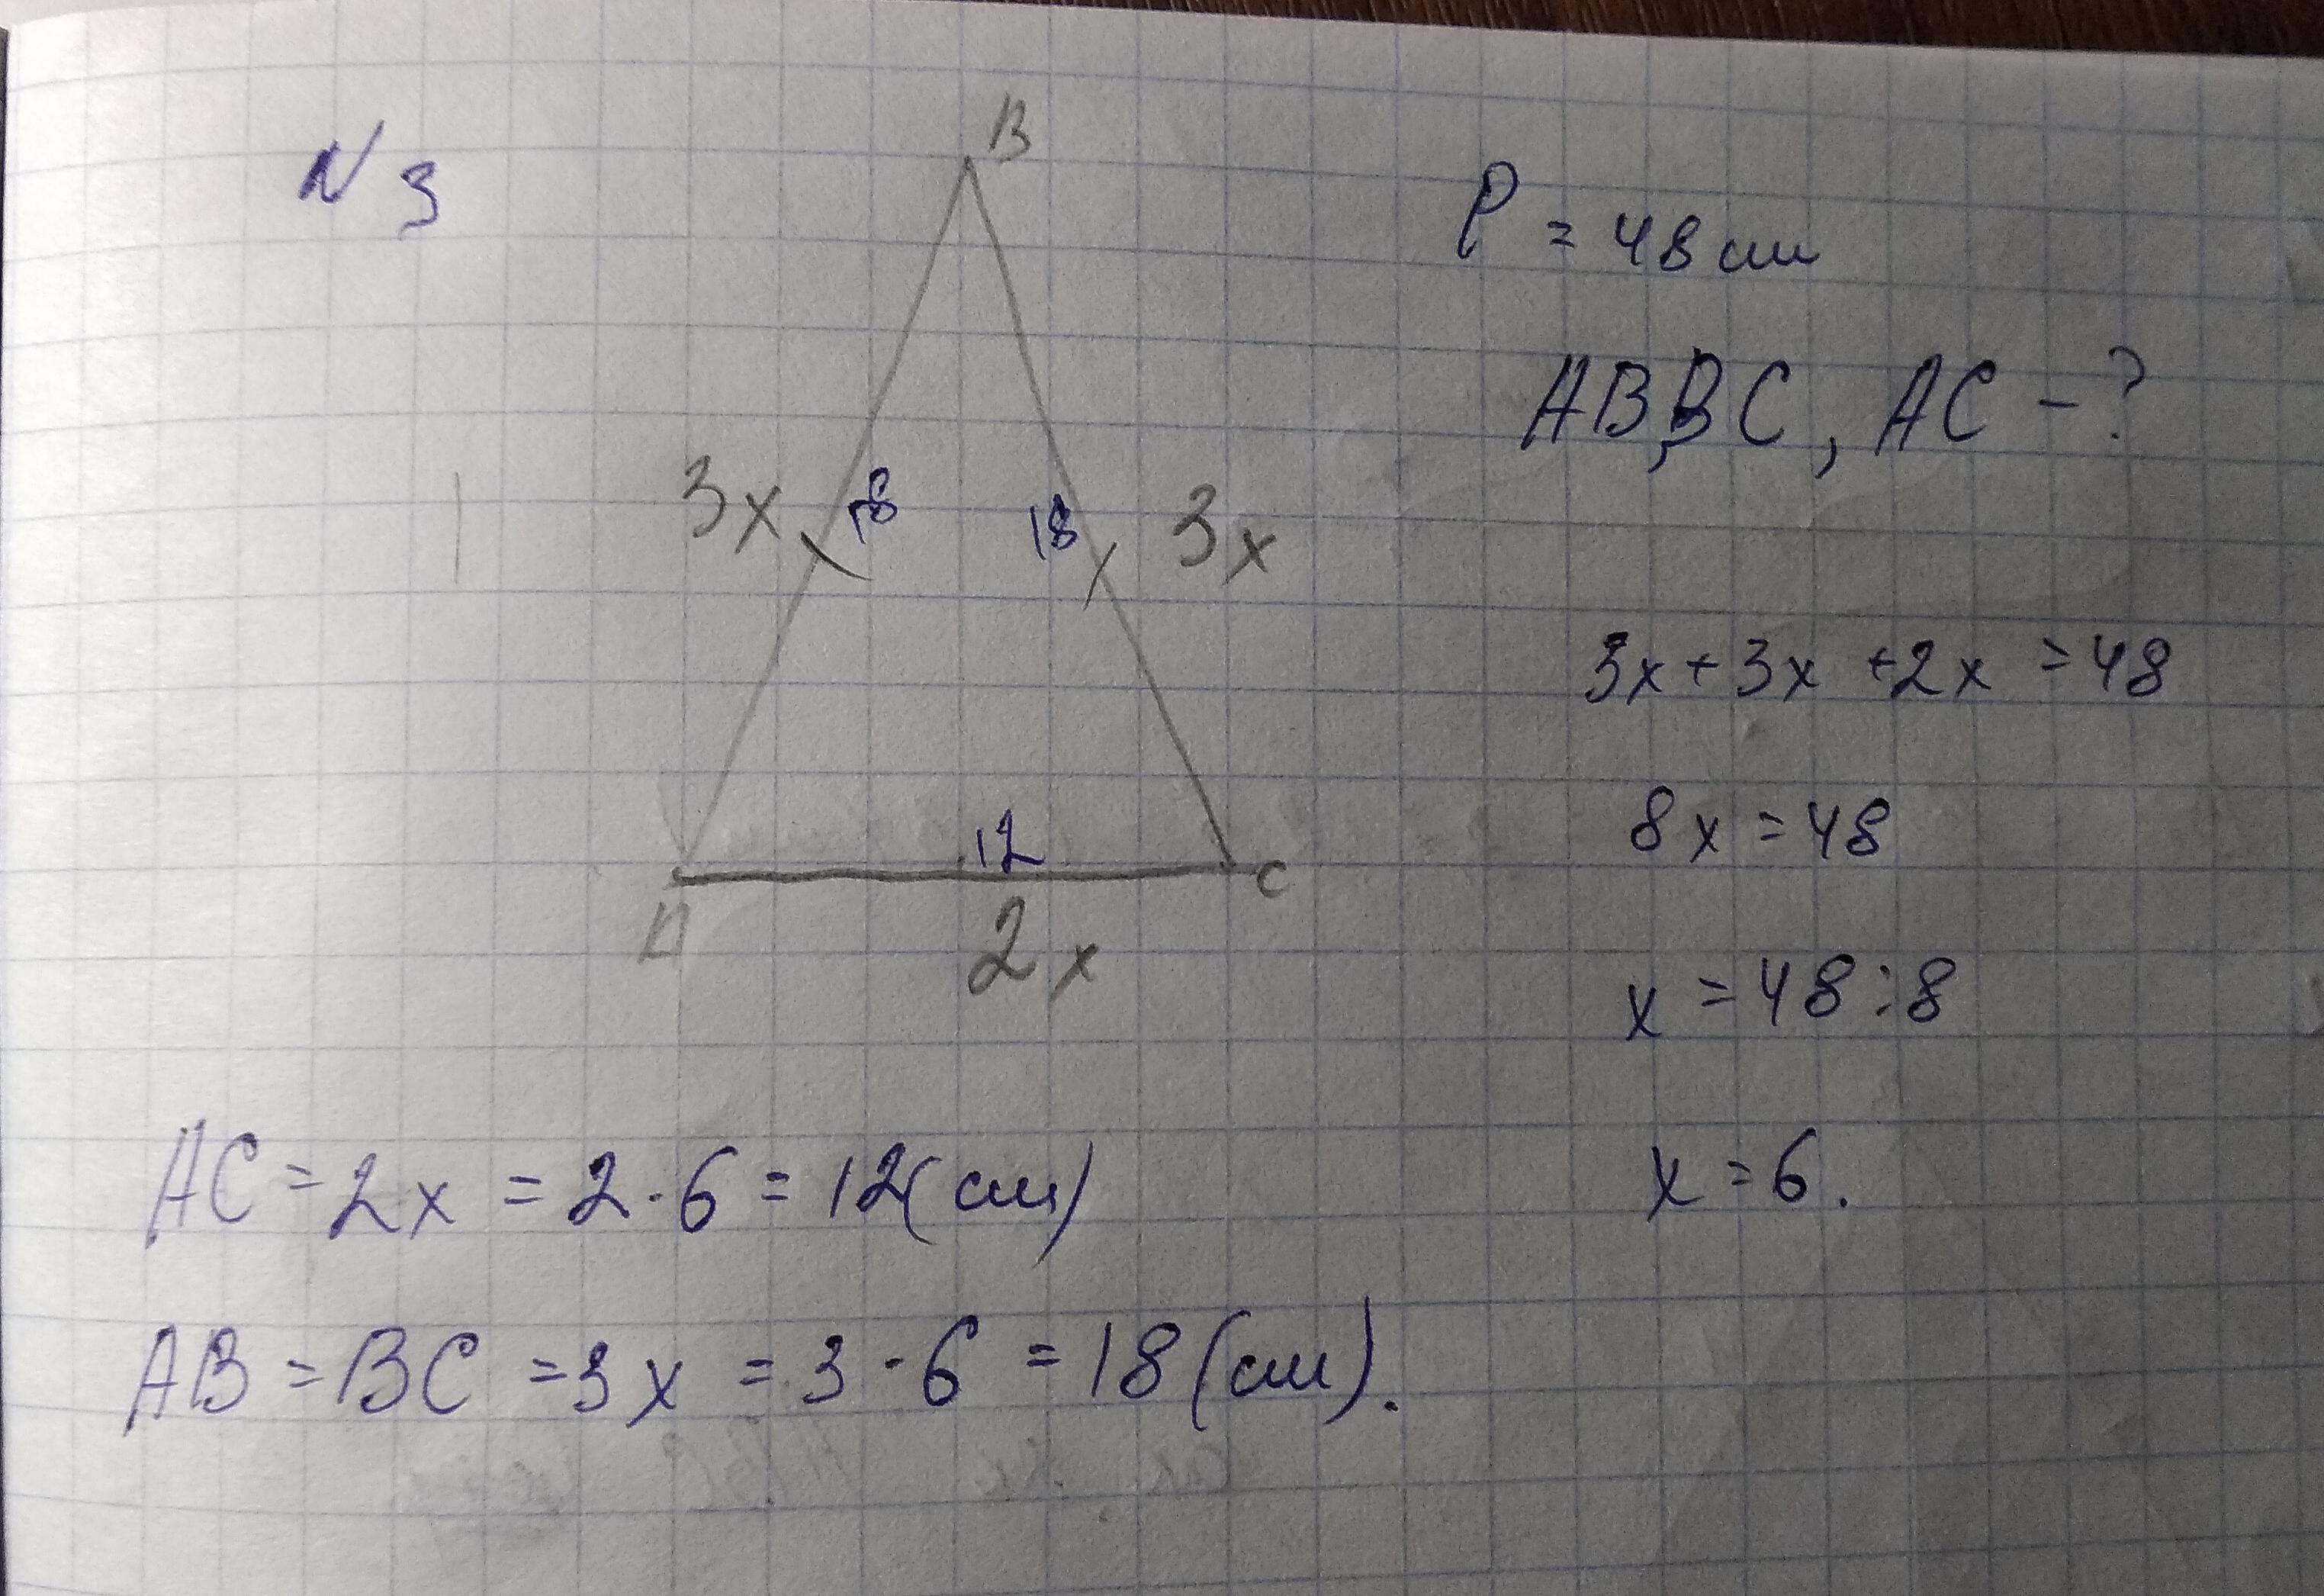 N 3
B
P = 48 см
AB, BC, AC - ?
3x
18
18
3x
3x + 3x + 2x = 48
8x = 48
12
A
C
2x
x = 48 : 8
x = 6.
AC = 2x = 2 · 6 = 12 (см)
AB = BC = 3x = 3 · 6 = 18 (см).